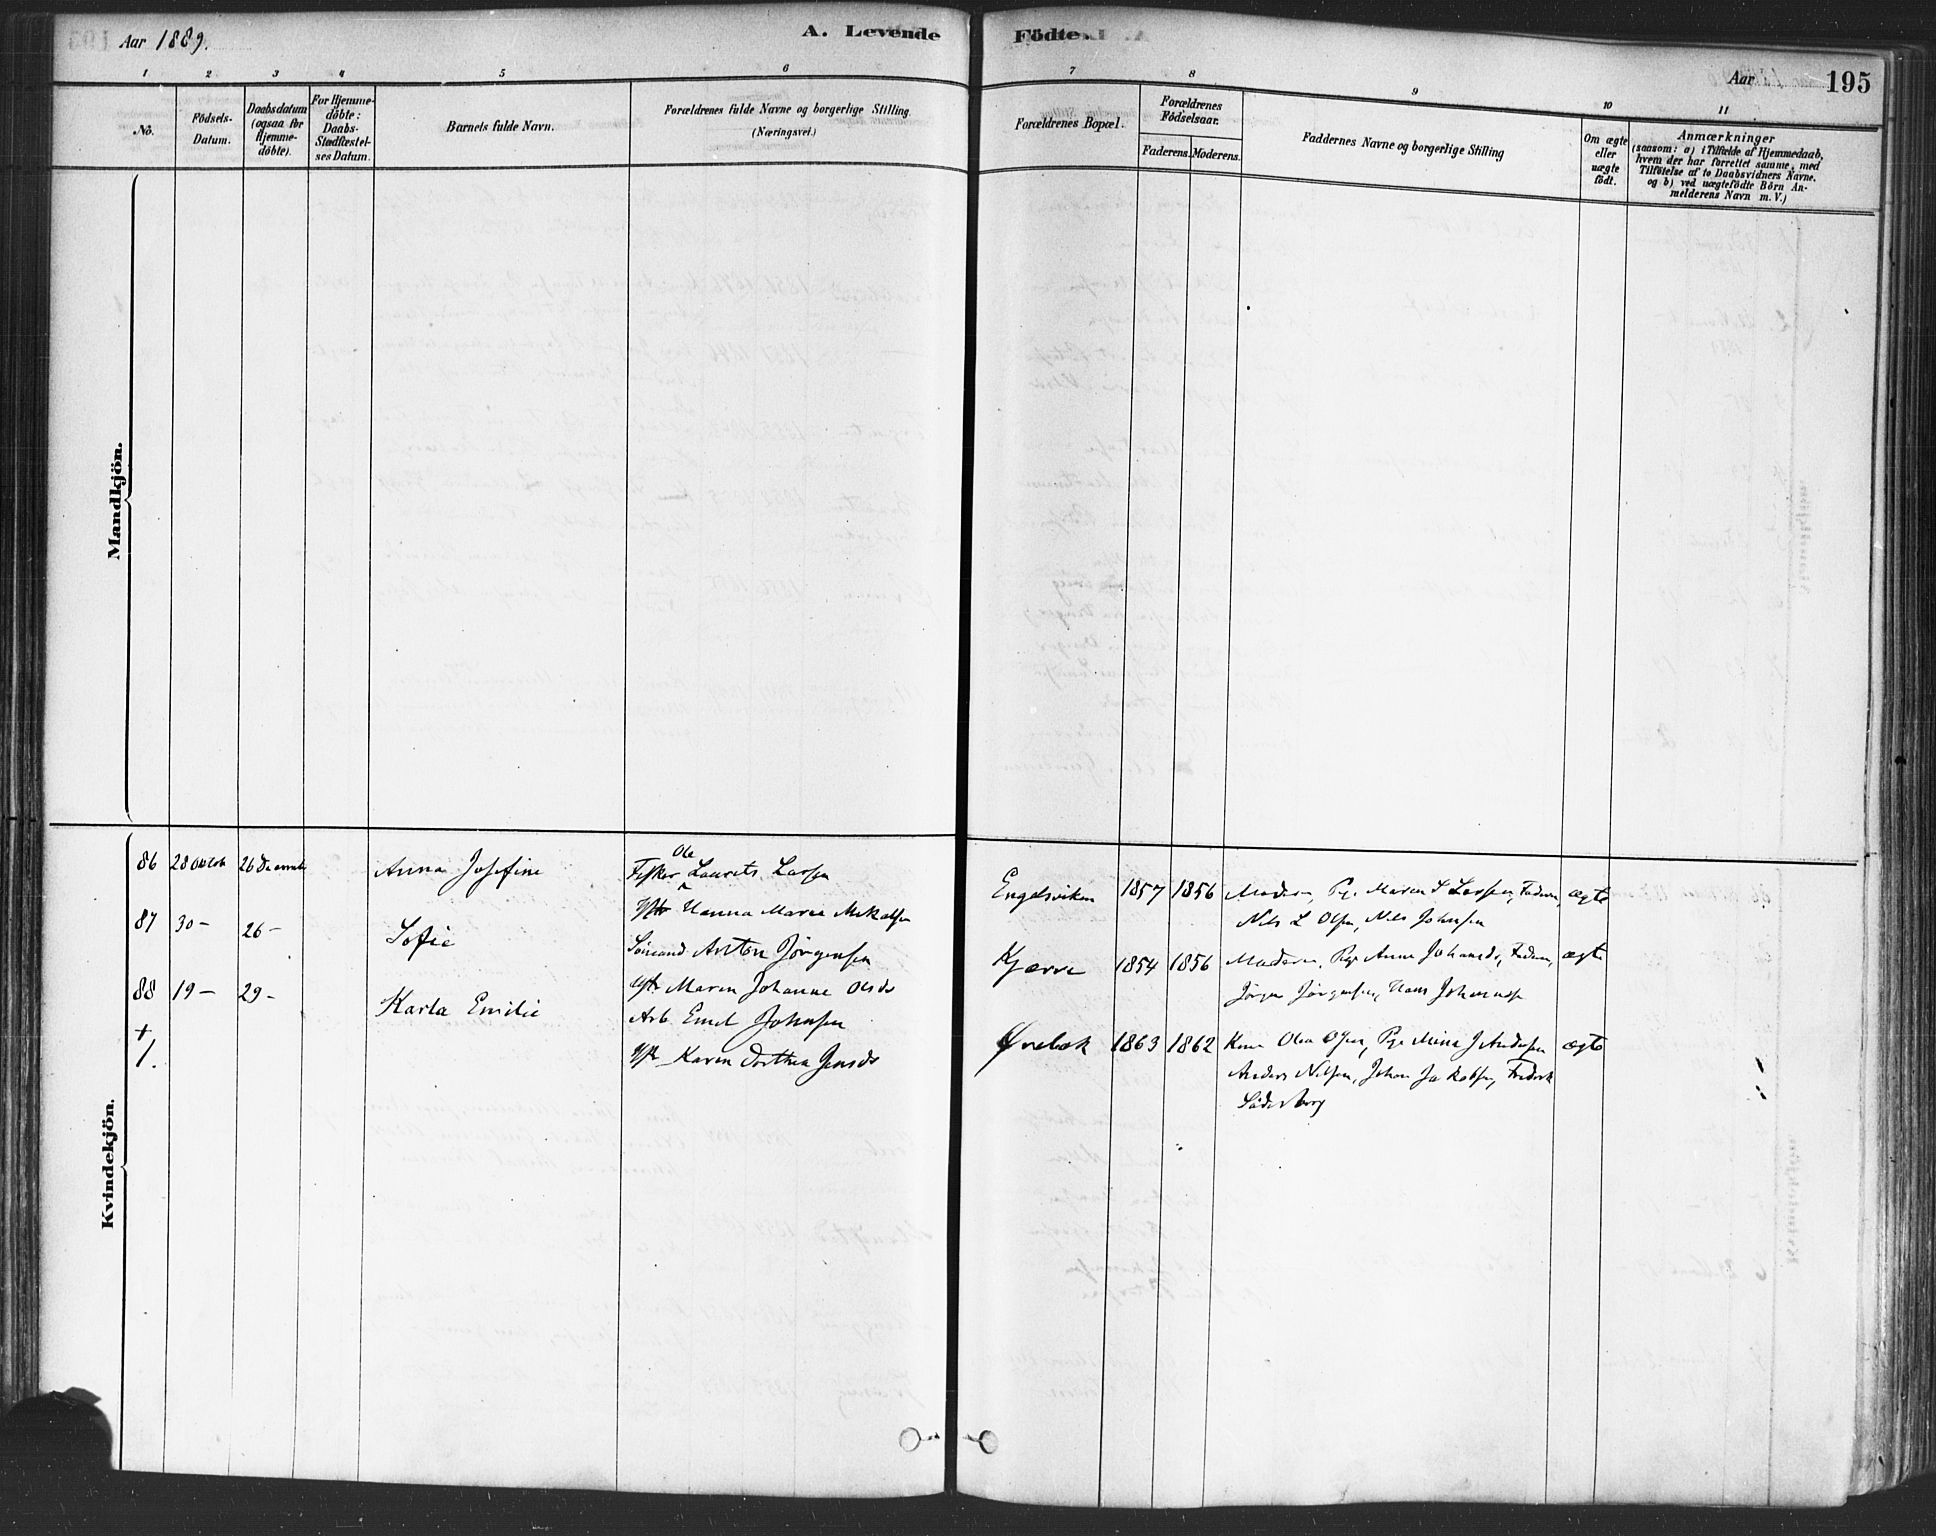 Aar 1889.
A. Levende
Födte.
Aar
195
1 2 3 4 5 6 7 8 9 10 11
No.
Födsels-
Datum.
Daabsdatum
(ogsaa for
Hjemme-
döbte).
For Hjemme-
döbte:
Daabs-
Stadfæstel-
ses Datum.
Barnets fulde Navn.
Forældrenes fulde Navne og borgerlige Stilling.
(Næringsvei.)
Forældrenes Bopæl.
Forældrenes
Födselsaar.
Faderens. Moderens.
Faddernes Navne og borgerlige Stilling
Om ægte
eller
uægte
födt.
Anmærkninger
(saasom: a) i Tilfælde af Hjemmedaab,
hvem der har forrettet samme, med
Tilföielse af to Daabsvidners Navne,
og b) ved uægtefödte Börn An-
melderens Navn m. V.)
Mandkjön.
Kvindekjön.
86 28 Oktob 26 Decemb Anna Josefine
Ole
Fisker Laurits Larsen
Hanna Maria Mikalsen
Engelsviken 1857 1856 Moderen, Pge Maren S Larsen, Faderen, ægte
Nils L Olsen, Nils Johnsen
87 30 – 26 – Sofie
Sömand Anton Jörgensen
Maren Johanne Olsdr
Kjærre 1854 1856 Moderen, Pge Anne Johansdr, Faderen, ægte
Jörgen Jörgensen, Hans Johannes
88 19 – 29 – Karla Emilie
Arb Emil Johnsen
Karen Dorthea Jensdr
Ørebæk 1863 1862 Kone Olea Olsen, Pge Mina J Andersen ægte
Anders Nilsen, Johan Jakobsen, Fredrik
Söderberg
+
1.